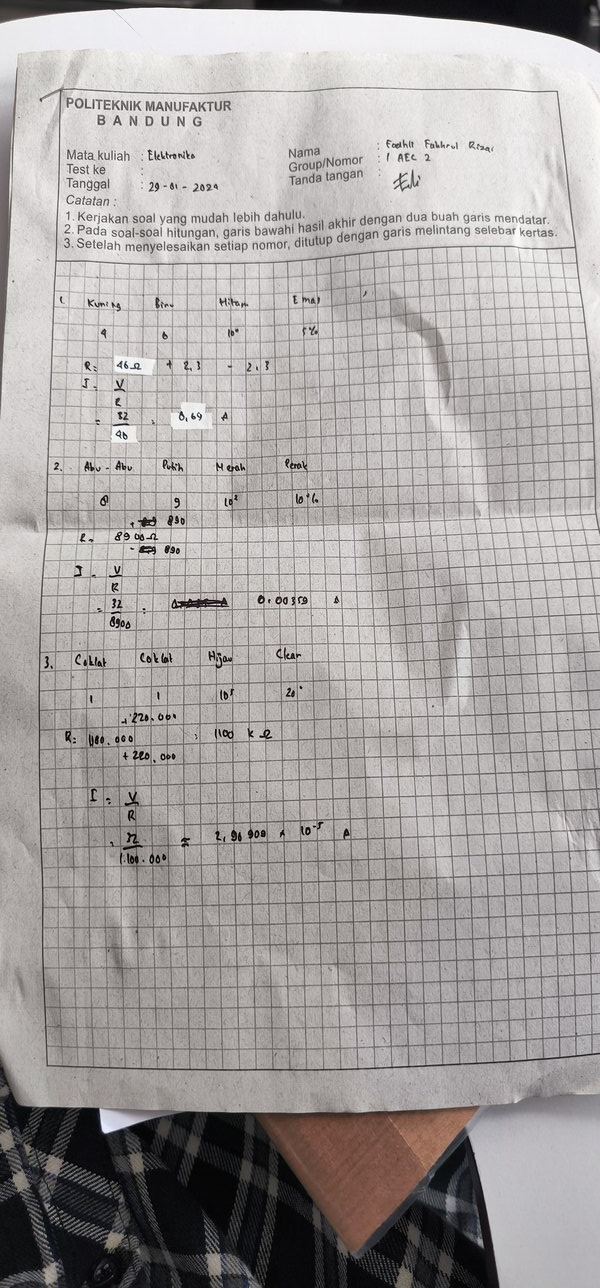 POLITEKNIK MANUFAKTUR
BANDUNG
Mata kuliah : Elektronika
Test ke :
Tanggal : 29-01-2024
Nama : Fadhil Fakhrul Rizal
Group/Nomor : 1 AEC 2
Tanda tangan :
Catatan :
1. Kerjakan soal yang mudah lebih dahulu.
2. Pada soal-soal hitungan, garis bawahi hasil akhir dengan dua buah garis mendatar.
3. Setelah menyelesaikan setiap nomor, ditutup dengan garis melintang selebar kertas.
1. Kuning Biru Hitam Emas
4 6 10⁰ 5%
R = 46Ω + 2,3 - 2,3
I = V
R
= 32 = 0,69 A
46
2. Abu-Abu Putih Merah Perak
8 9 10² 10%
+ 890
R = 8900Ω
- 890
I = V
R
= 32 = 0.00359 A
8900
3. Coklat Coklat Hijau Clear
1 1 10⁵ 20
+ 220.000
R = 1100.000 = 1100 kΩ
+ 220.000
I = V
R
= 32 = 2,90909 × 10⁻⁵ A
1.100.000